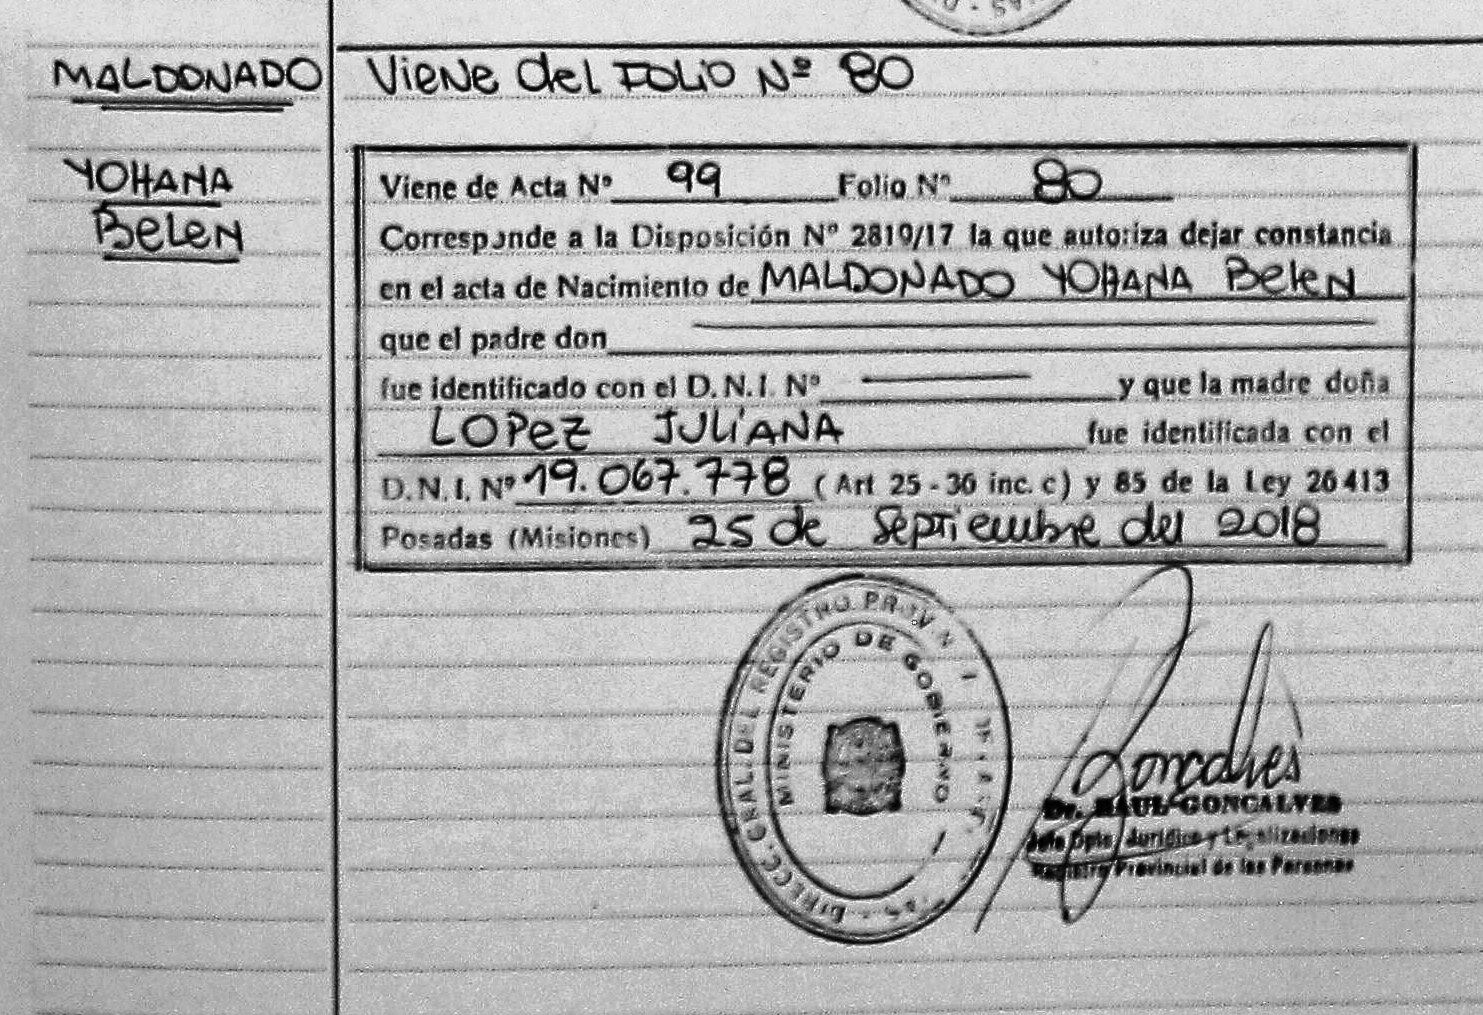 MALDONADO
YOHANA
Belen
Viene del FOLIO Nº 80
Viene de Acta Nº 99 Folio Nº 80
Corresponde a la Disposición Nº 2819/17 la que autoriza dejar constancia
en el acta de Nacimiento de MALDONADO YOHANA Belen
que el padre don
fue identificado con el D.N.I. Nº y que la madre doña
LOPEZ JULIANA fue identificada con el
D.N.I. Nº 19.067.778 (Art 25 - 36 inc. c) y 85 de la Ley 26413
Posadas (Misiones) 25 de Septiembre del 2018
DIRECC. GRAL. DEL REGISTRO
MINISTERIO DE GOBIERNO
Goncalves
Dr. RAUL GONCALVES
Jefe Dpto. Jurídico y Legalizaciones
Registro Provincial de las Personas